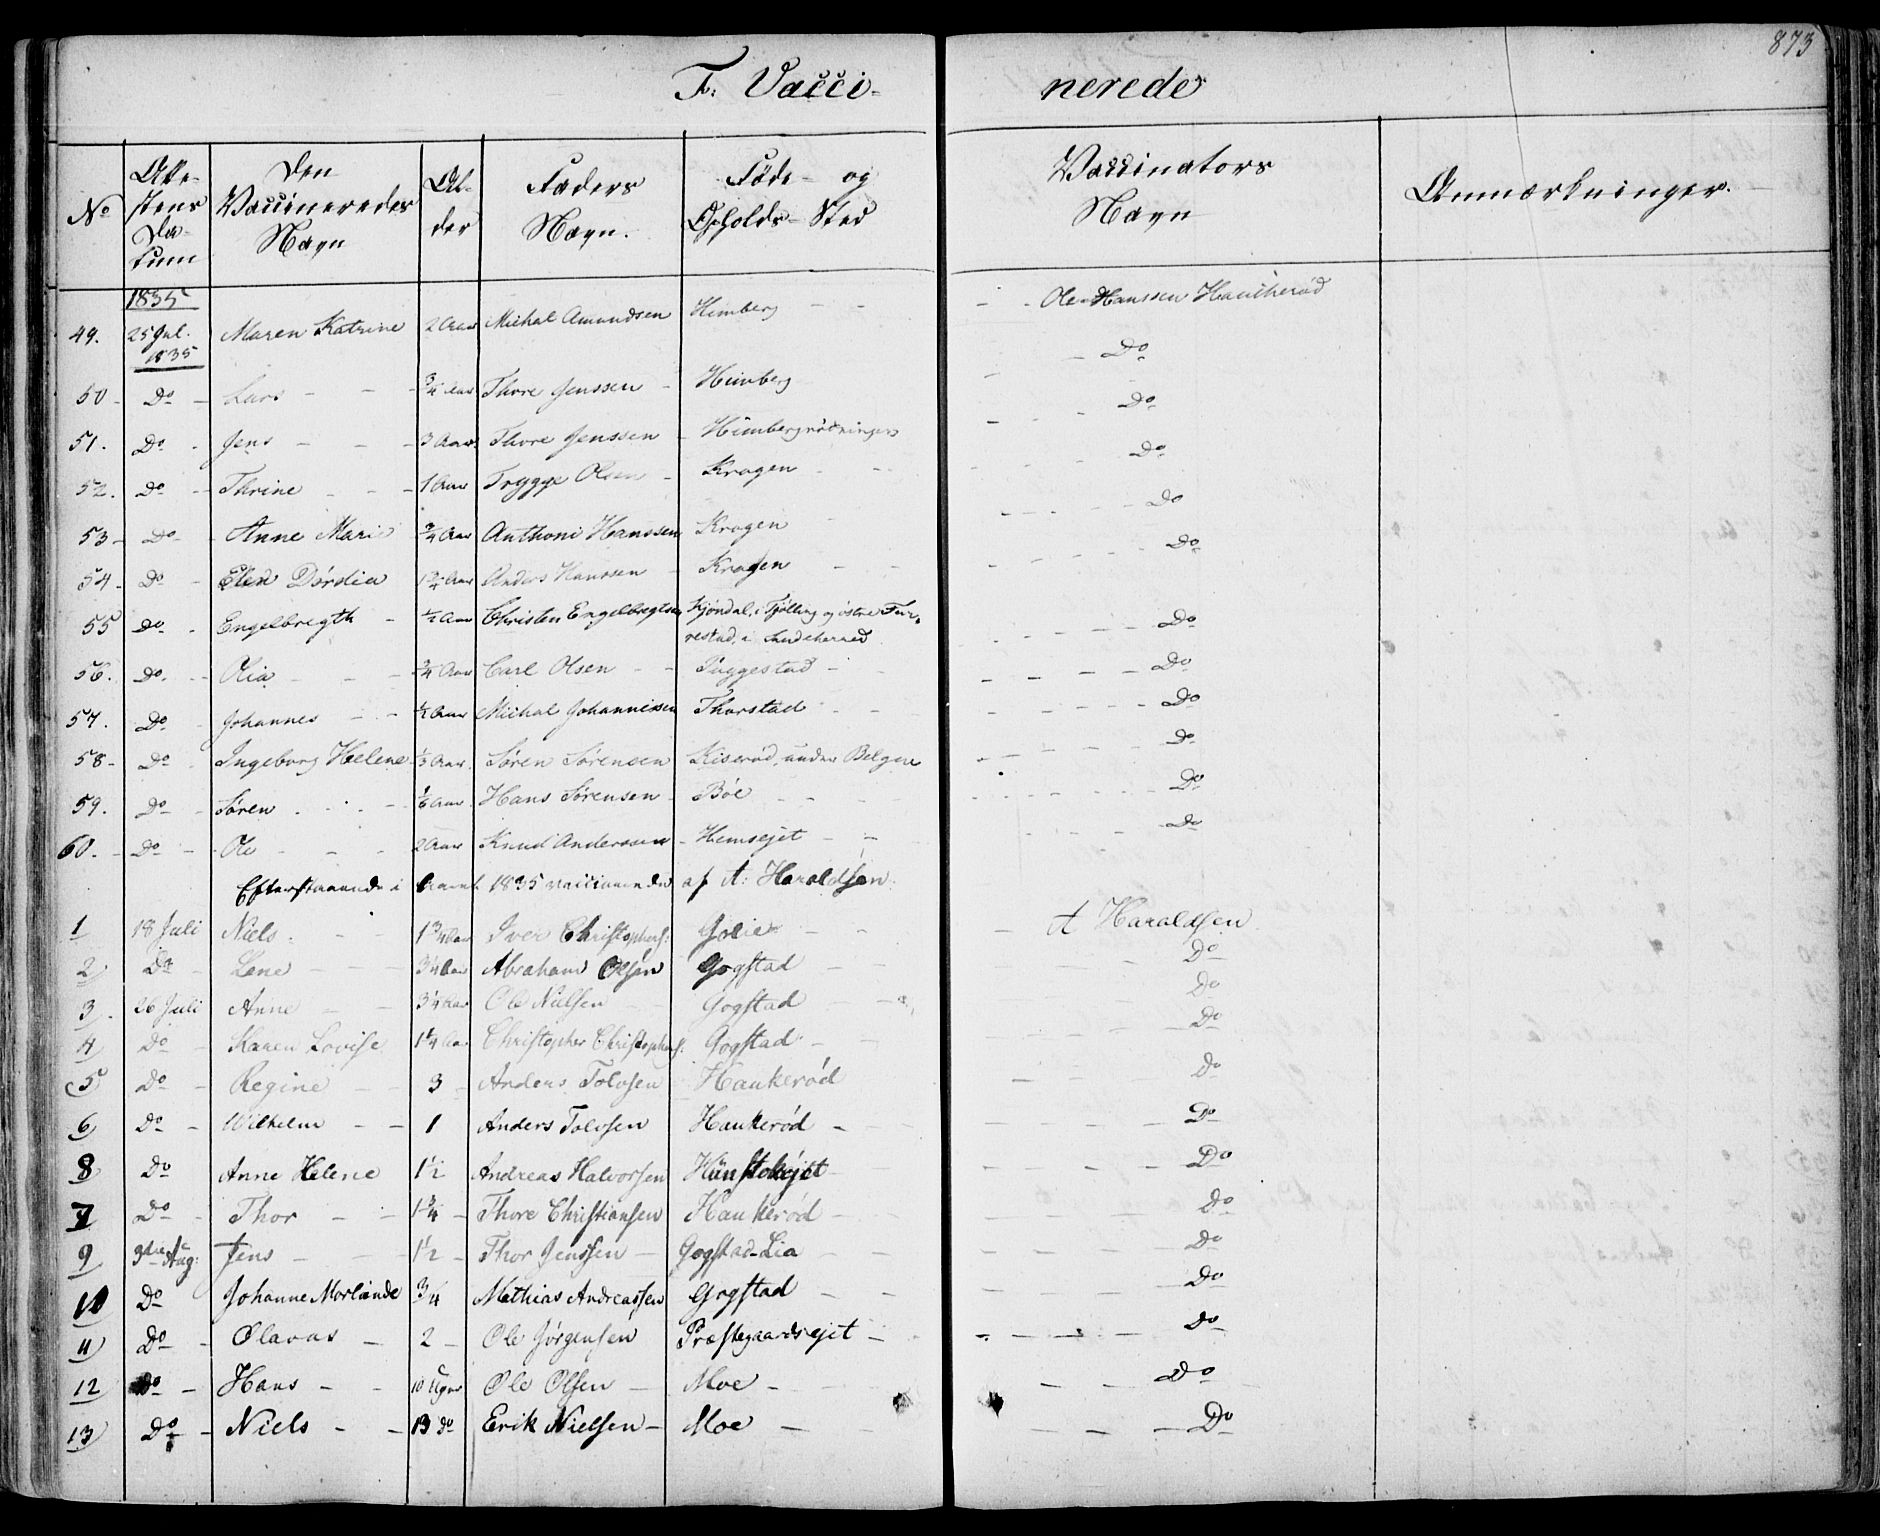 873
F. Vacci- nerede
No | Atte-stens Da-tum | Den Vaccineredes Navn | Al-der | Faders Navn. | Føde- og Opholds-Sted | Vaccinators Navn | Anmærkninger.
1835
49. 25 Jul. 1835 Maren Katrine 2 Aar Michal Amundsen Himberg - - Ole Hanssen Haukerød
50 - Do - Lars - - 3/4 Aar Thore Jenssen - Himberg - Do
51. Do - Jens - - 3 Aar Thore Jenssen - Do
52. Do - Thrine - - 1 Aar Trygge Olsen - Kragen - Do
53 - Do - Anne Marie 3/4 Aar Anthoni Hanssen Kragen - Do
54 - Do - Elen Dórdia 1 3/4 Aar Anders Hanssen - Kragen - Do
55 Do - Engelbregth - 1/2 Aar Christen Engelbregtsen i Tjølling og østre Fur-
restad, i Sandeherred - Do
56. Do - Olia - - 3/4 Aar Carl Olsen - - - Do
57. Do - Johannes - - 1/2 Aar Michal Johannessen Thorstad - - Do
58 - Do - Ingeborg Helene 1/3 Aar Søren Sørensen Kiserød, under - Do
59. Do - Søren - - 1/6 Aar Hans Sørensen - Bøe - - Do
60. - Do - Ole - - 2 Aar Knud Anderssen - Hemsejet - - Do
Efterstaaende i Aaret 1835 vaccinerede af A: Haraldsen
1 18 Juli Niels - - 1 3/4 Aar Iver Christophers: Golie - - A Haraldsen
2 Do - Lene - - 3 1/4 Aar Abraham Olsen Gogstad - - Do
3. 26 Juli Anne - - 3 1/4 Aar Ole Nielsen Gogstad - - Do
4 Do - Karen Lovise 1 1/4 Aar Christopher Christophers: Gogstad - - Do
5 Do - Regine - - 3 - Anders Tolvsen Haukerød - Do
6 Do - Wilhelm - - 1 Anders Tolvsen Haukerød - - Do
8 Do Anne Helene 1 1/2 Andreas Halvorsen - Do
7 Do - Thor - - 1 3/4 - Thore Christiansen Haukerød - - Do
9 9de Aug: Jens - - 1 1/2 - Thor Jenssen - Gogstad-Lia - Do
10 Do Johanne 3/4 Mathias Andreassen Gogstad - - Do
11 Do - Olavas - 2 - Ole Jørgensen Præstegaardsejet - - Do
12 Do - Hans - - 10 Uger Ole Olsen - Moe - - Do
13 Do - Niels - - 13 do Erik Nielsen - Moe - - Do